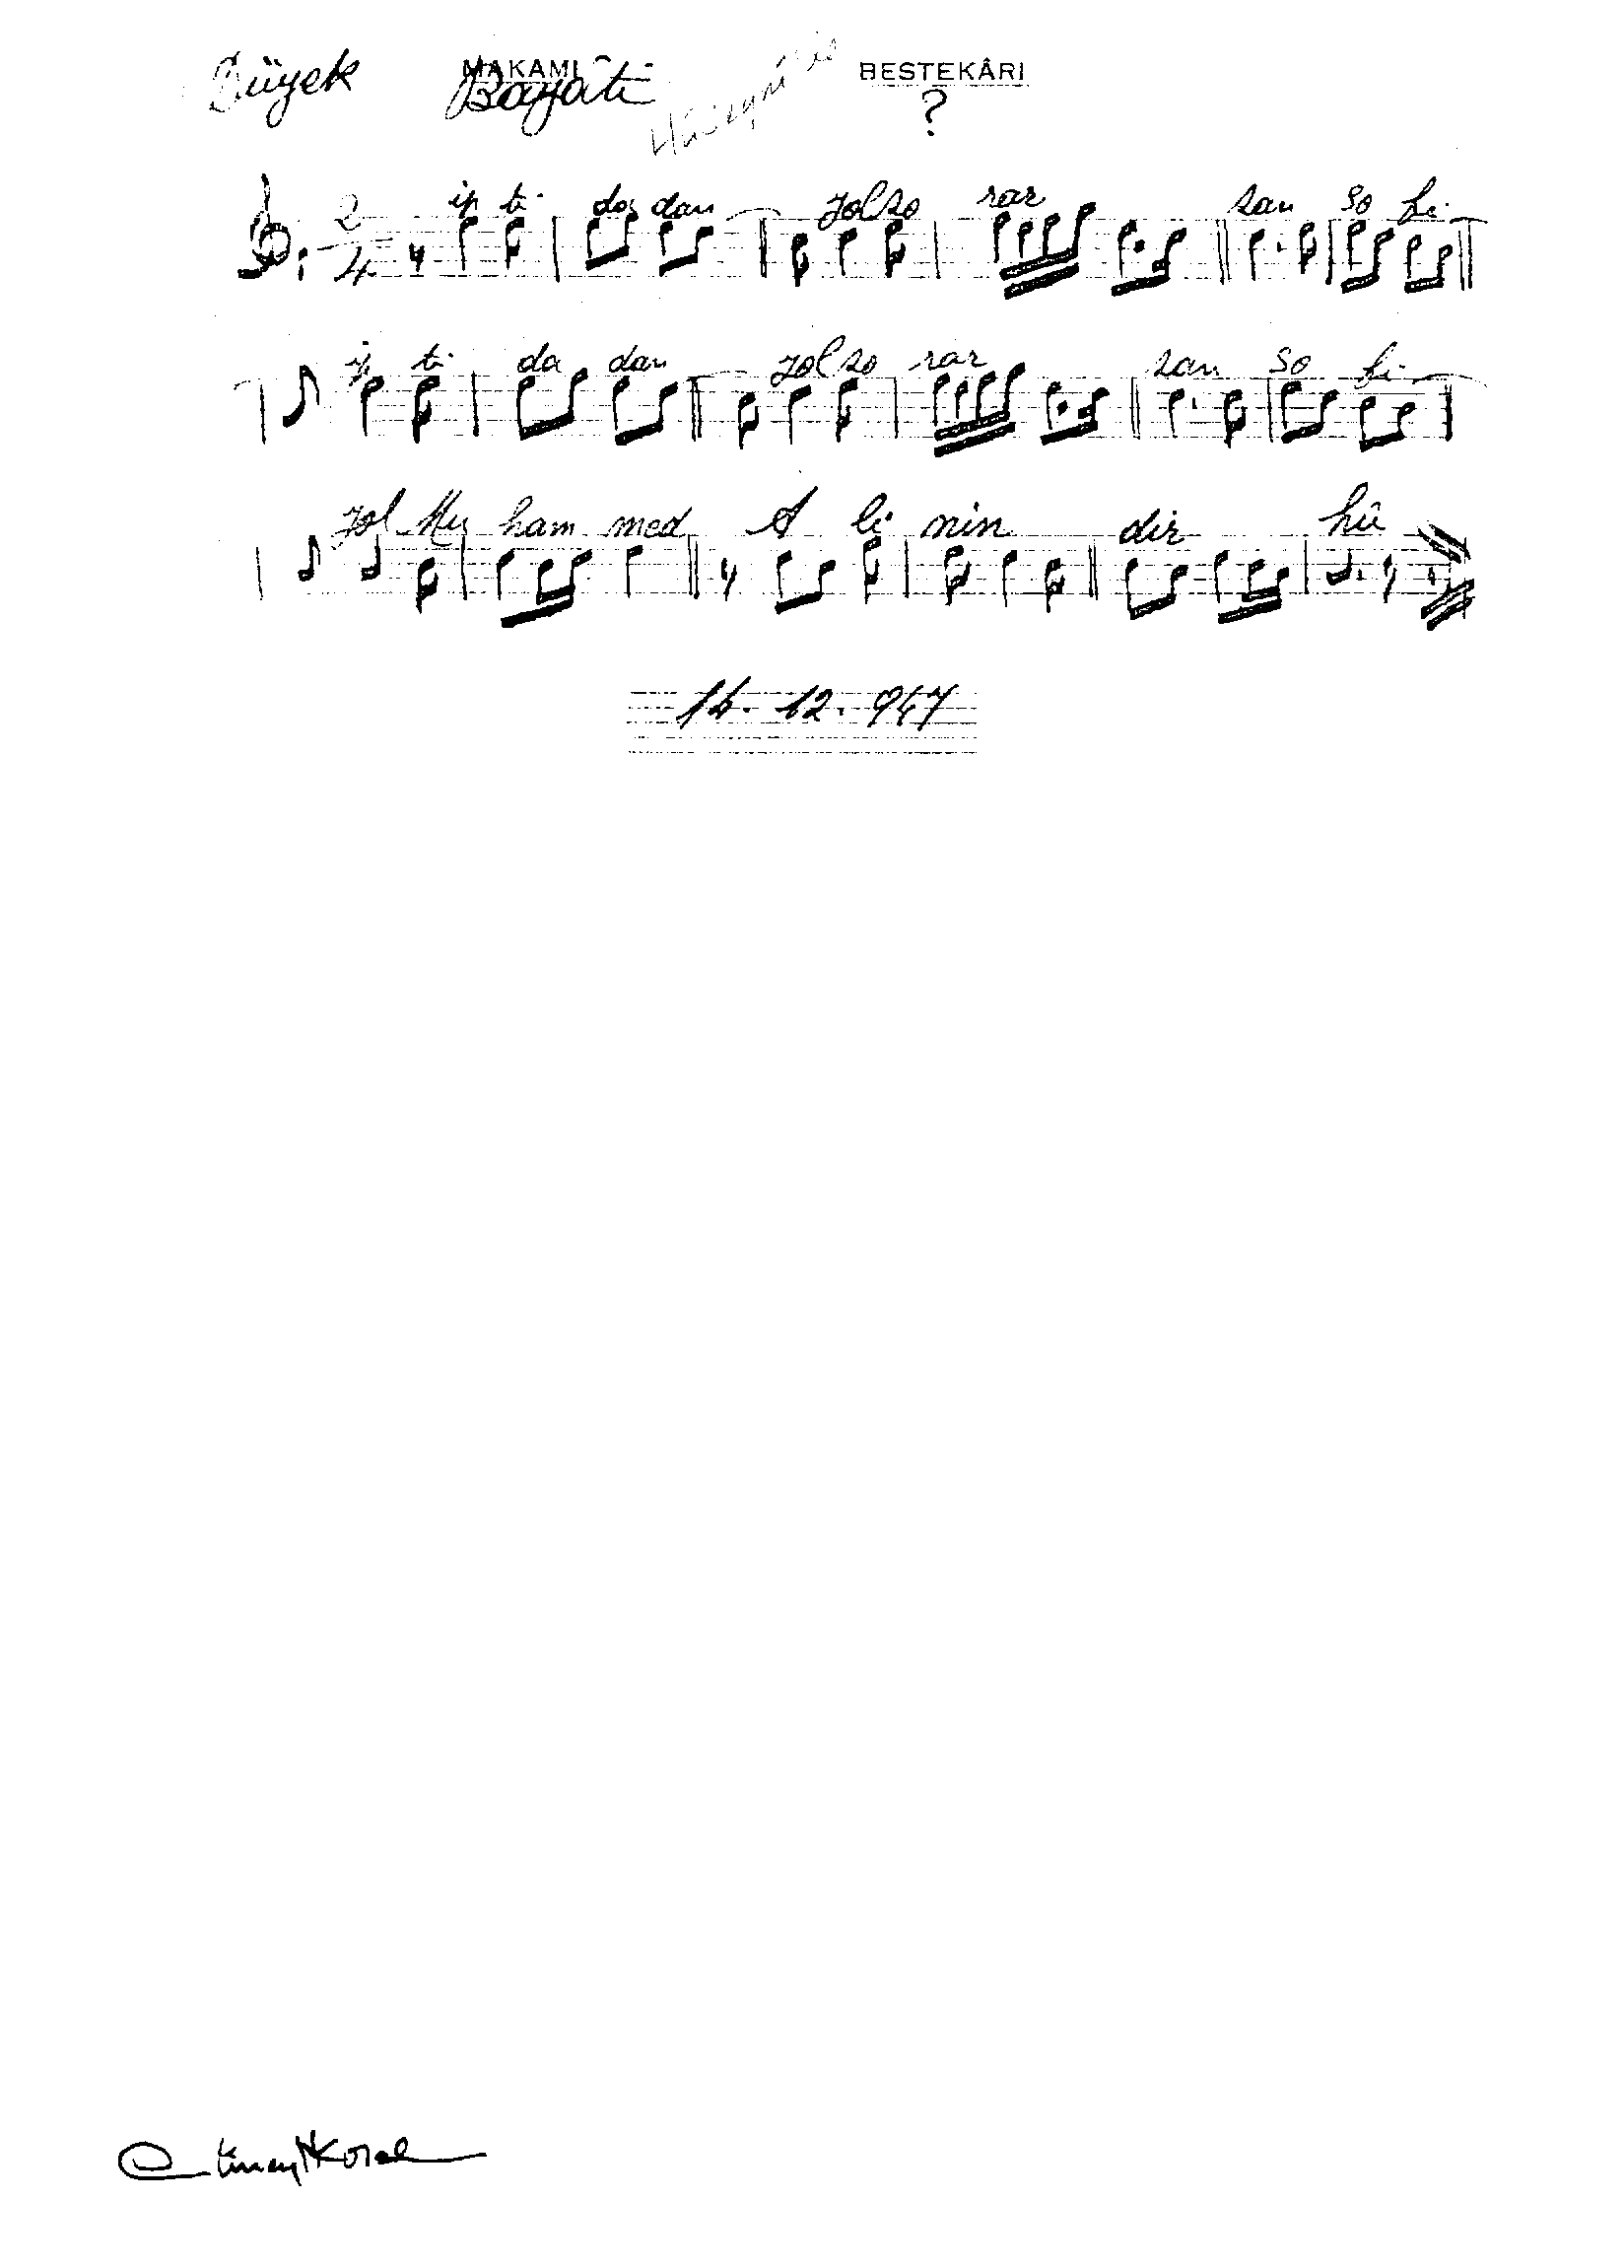 Düyek MAKAMI Bayâti Hüseyni BESTEKÂRI
?
2
4
ip ti da dan yol so rar san so fi
ip ti da dan yol so rar san so fi
yol Mu ham med A li nin dir hû
14.12.947
Cüneyt Kosal